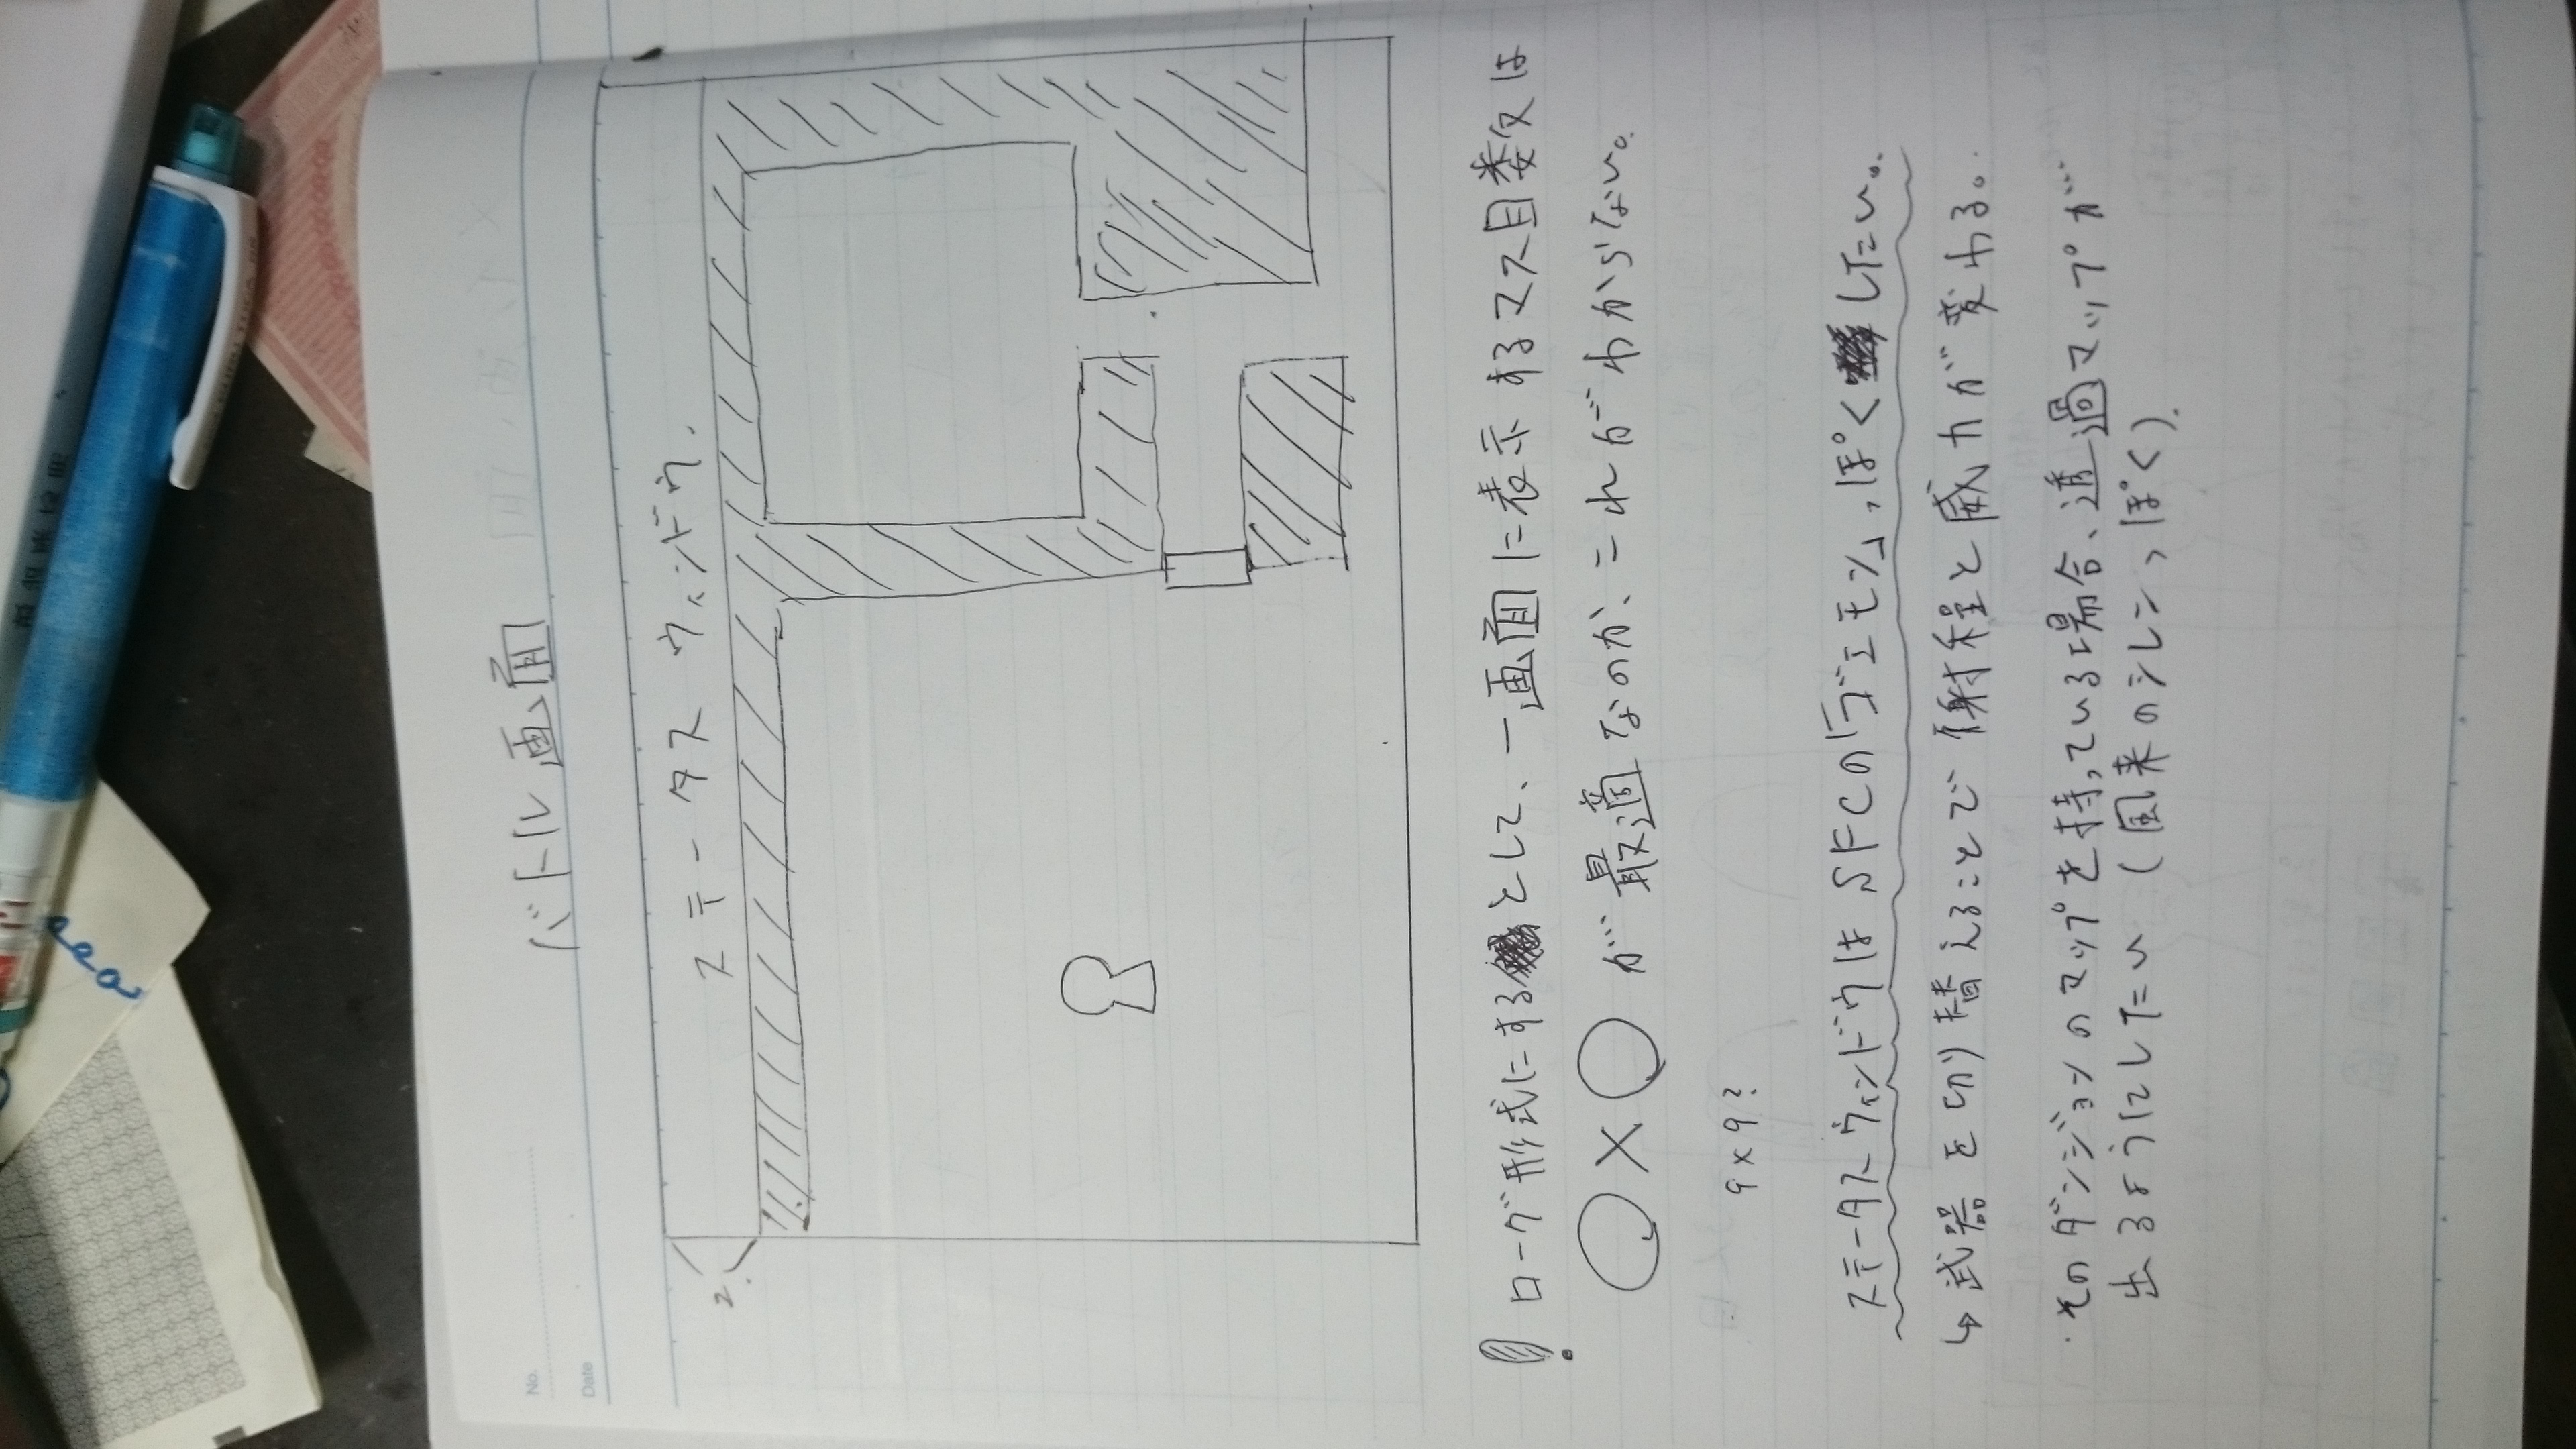 No.
Date
バトル画面
ステータスウィンドウ.
2.
! ローグ形式にするとして、一画面に表示するマス目数は
○×○が最適なのか、これがわからない。
9×9?
ステータスウィンドウはSFCの「ゴエモン」っぽくしたい。
↳武器を切り替えることで射程と威力が変わる。
・そのダンジョンのマップを持っている場合、透過マップが
出るようにしたい(風来のシレンっぽく).